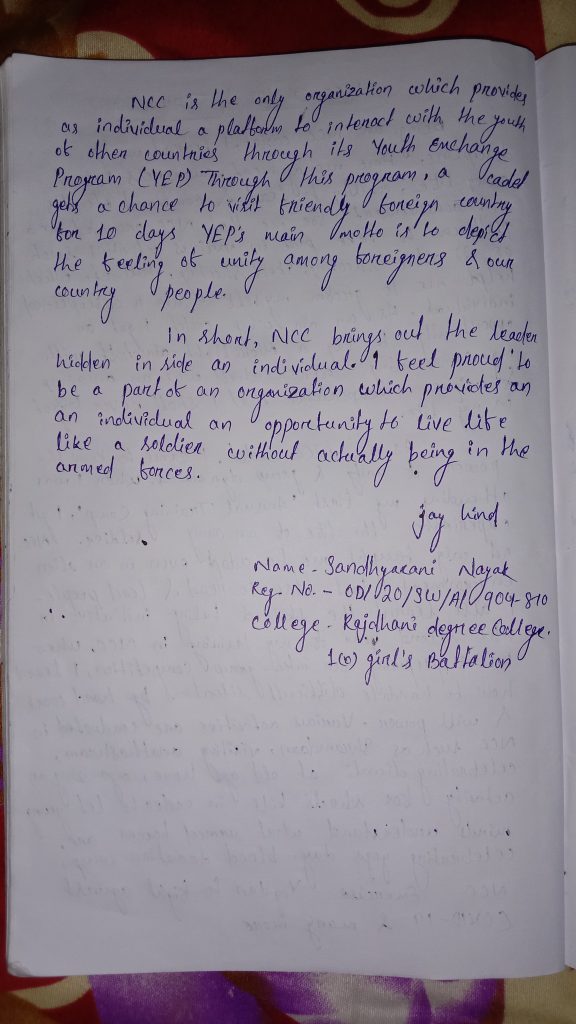 NCC is the only organization which provides
as individual a platform to interact with the youth
of other countries through its Youth Exchange
Program (YEP) Through this program, a cadet
gets a chance to visit friendly foreign country
for 10 days YEP's main motto is to depict
the feeling of unity among foreigners & our
country people.
In short, NCC brings out the leader
hidden in side an individual. I feel proud to
be a part of an organization which provides an
an individual an opportunity to live life
like a soldier without actually being in the
armed forces.
jay hind.
Name - Sandhyarani Nayak
Reg. No. - OD/20/SW/A/904810
College - Rajdhani degree College.
1(O) girl's Battalion